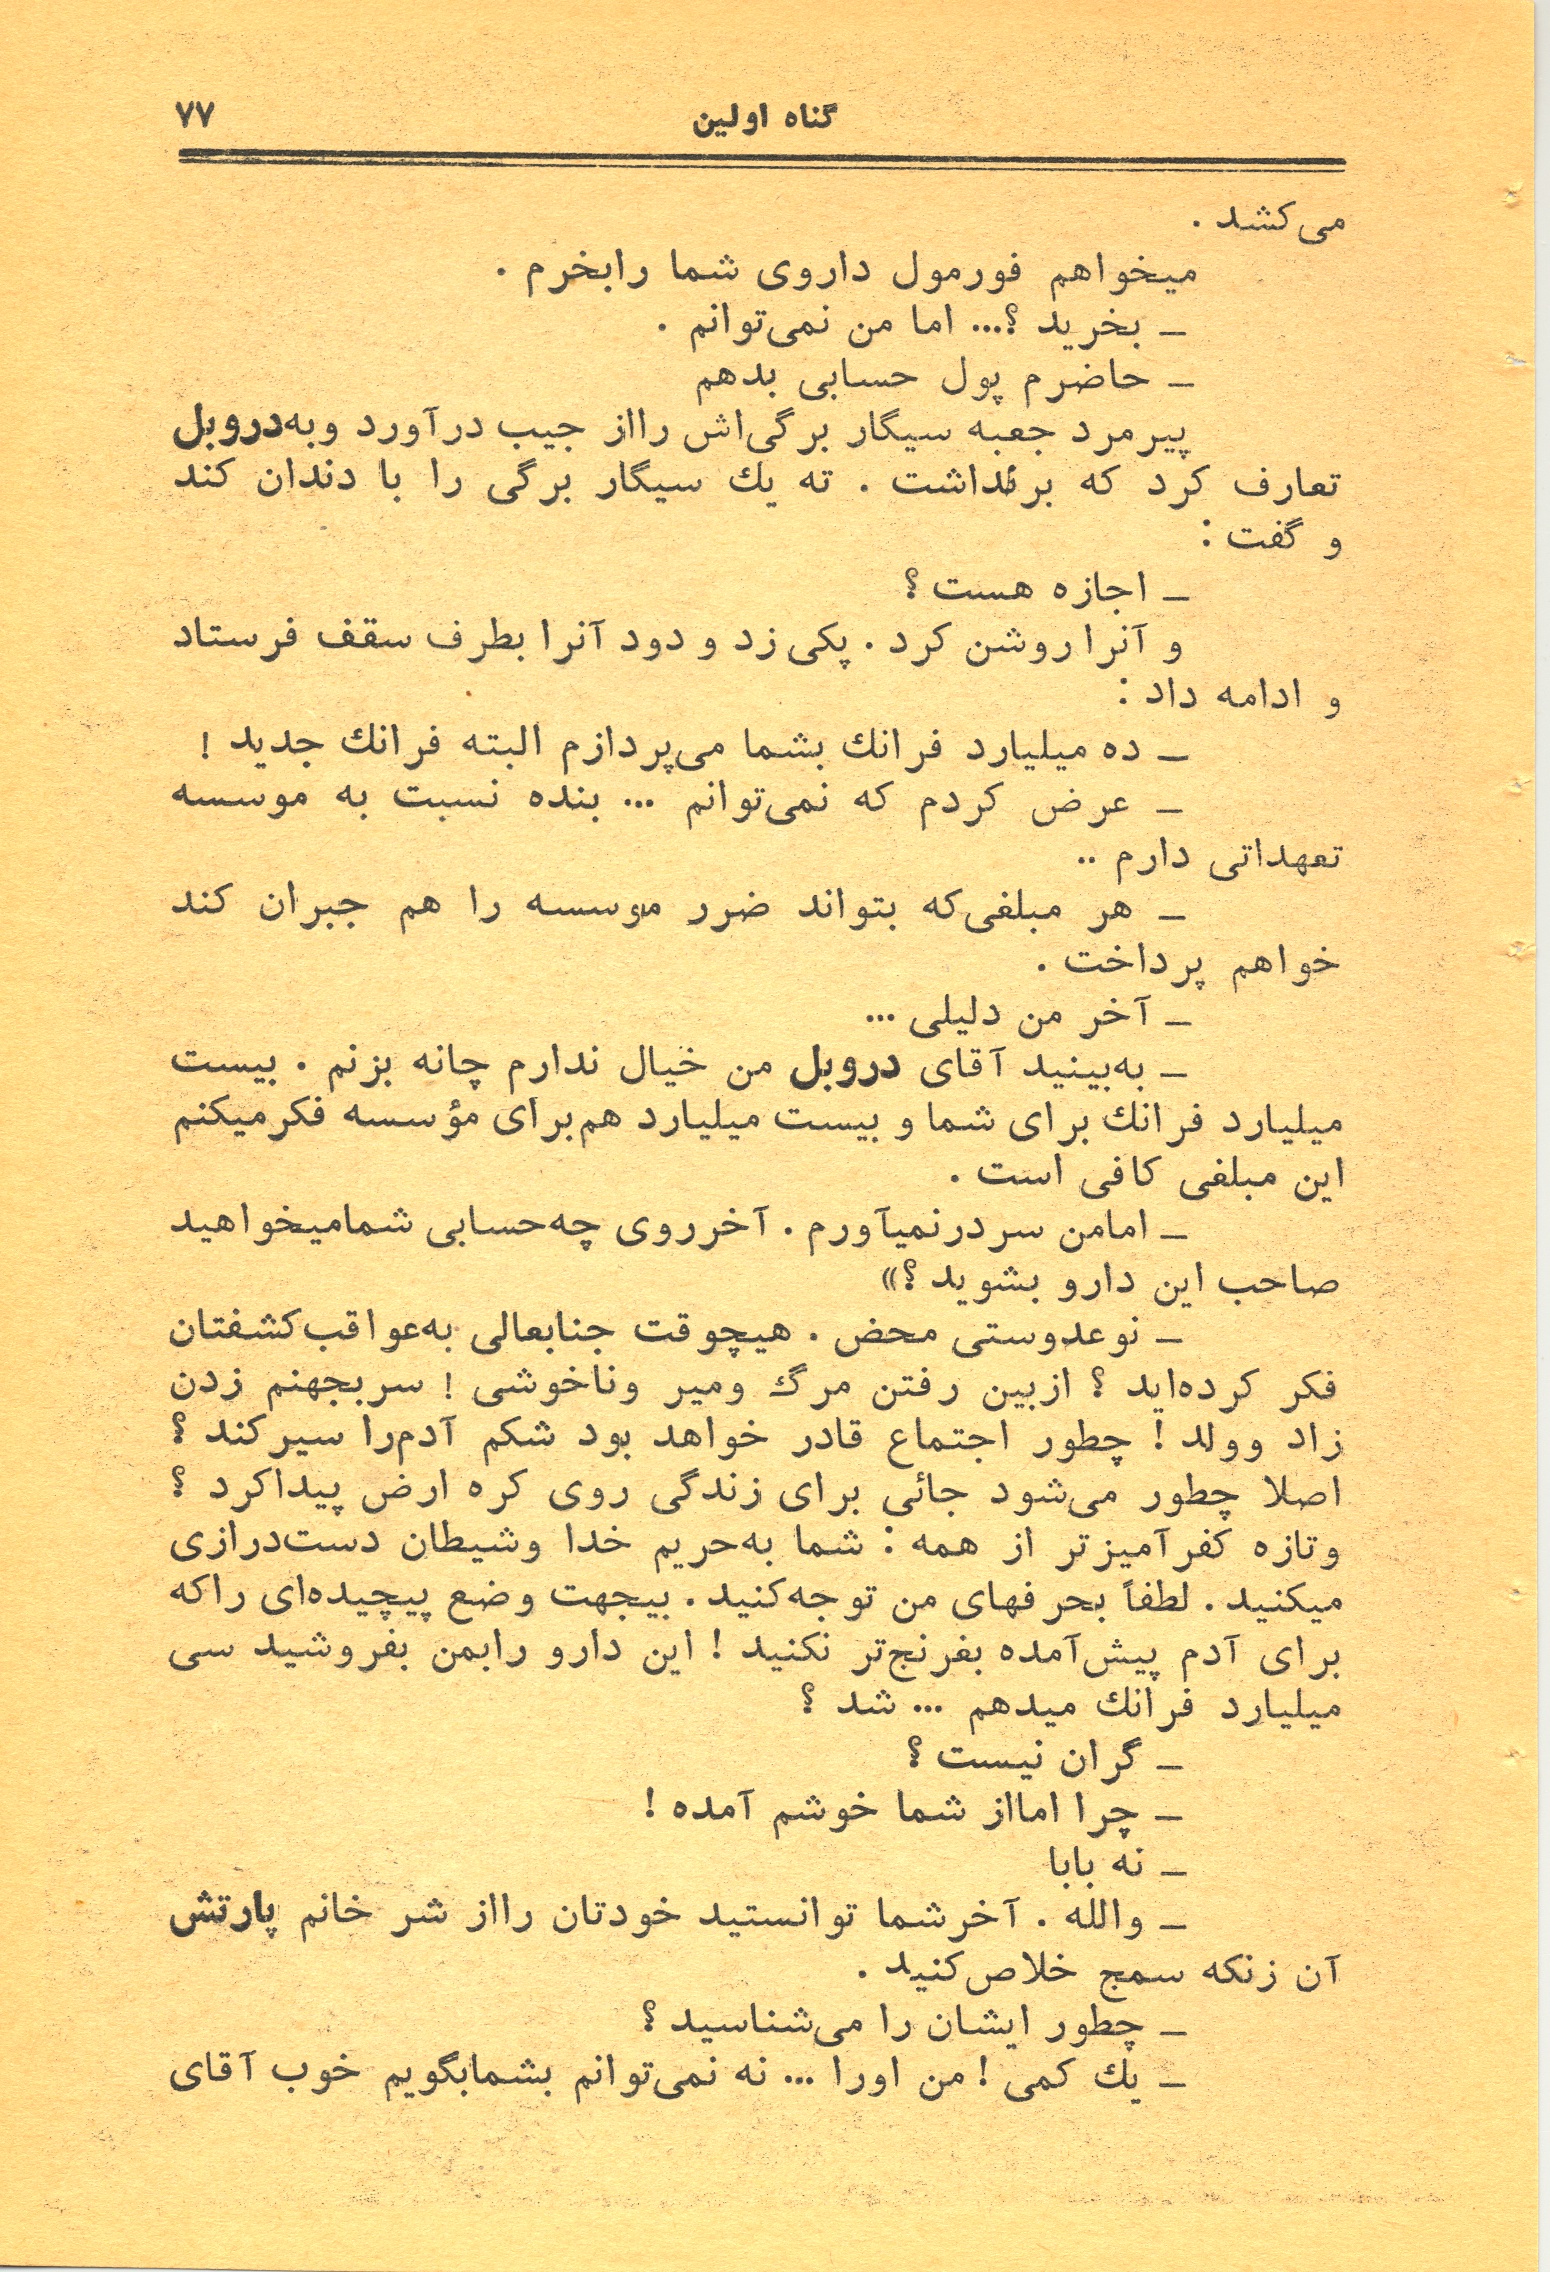 گناه اولین ۷۷
می‌کشد .
میخواهم فورمول داروی شما رابخرم .
ـ بخرید ؟... اما من نمی‌توانم .
ـ حاضرم پول حسابی بدهم
پیرمرد جعبه سیگار برگی‌اش رااز جیب درآورد وبه‌دروبل
تعارف کرد که برنداشت . ته یك سیگار برگی را با دندان کند
و گفت :
ـ اجازه هست ؟
و آنرا روشن کرد . پکی زد و دود آنرا بطرف سقف فرستاد
و ادامه داد :
ـ ده میلیارد فرانك بشما می‌پردازم البته فرانك جدید !
ـ عرض کردم که نمی‌توانم ... بنده نسبت به موسسه
تعهداتی دارم ..
ـ هر مبلغی‌که بتواند ضرر موسسه را هم جبران کند
خواهم پرداخت .
ـ آخر من دلیلی ...
ـ به‌بینید آقای دروبل من خیال ندارم چانه بزنم . بیست
میلیارد فرانك برای شما و بیست میلیارد هم‌برای مؤسسه فکرمیکنم
این مبلغی کافی است .
ـ امامن سردرنمیآورم . آخرروی چه‌حسابی شمامیخواهید
صاحب این دارو بشوید ؟»
ـ نوعدوستی محض . هیچوقت جنابعالی به‌عواقب‌کشفتان
فکر کرده‌اید ؟ ازبین رفتن مرگ ومیر وناخوشی ! سربجهنم زدن
زاد وولد ! چطور اجتماع قادر خواهد بود شکم آدم‌را سیرکند ؟
اصلا چطور می‌شود جائی برای زندگی روی کره ارض پیداکرد ؟
وتازه کفرآمیزتر از همه : شما به‌حریم خدا وشیطان دست‌درازی
میکنید . لطفاً بحرفهای من توجه‌کنید . بیجهت وضع پیچیده‌ای راکه
برای آدم پیش‌آمده بغرنج‌تر نکنید ! این دارو رابمن بفروشید سی
میلیارد فرانك میدهم ... شد ؟
ـ گران نیست ؟
ـ چرا امااز شما خوشم آمده !
ـ نه بابا
ـ والله . آخرشما توانستید خودتان رااز شر خانم پارتش
آن زنکه سمج خلاص‌کنید .
ـ چطور ایشان را می‌شناسید ؟
ـ یك کمی ! من اورا ... نه نمی‌توانم بشمابگویم خوب آقای